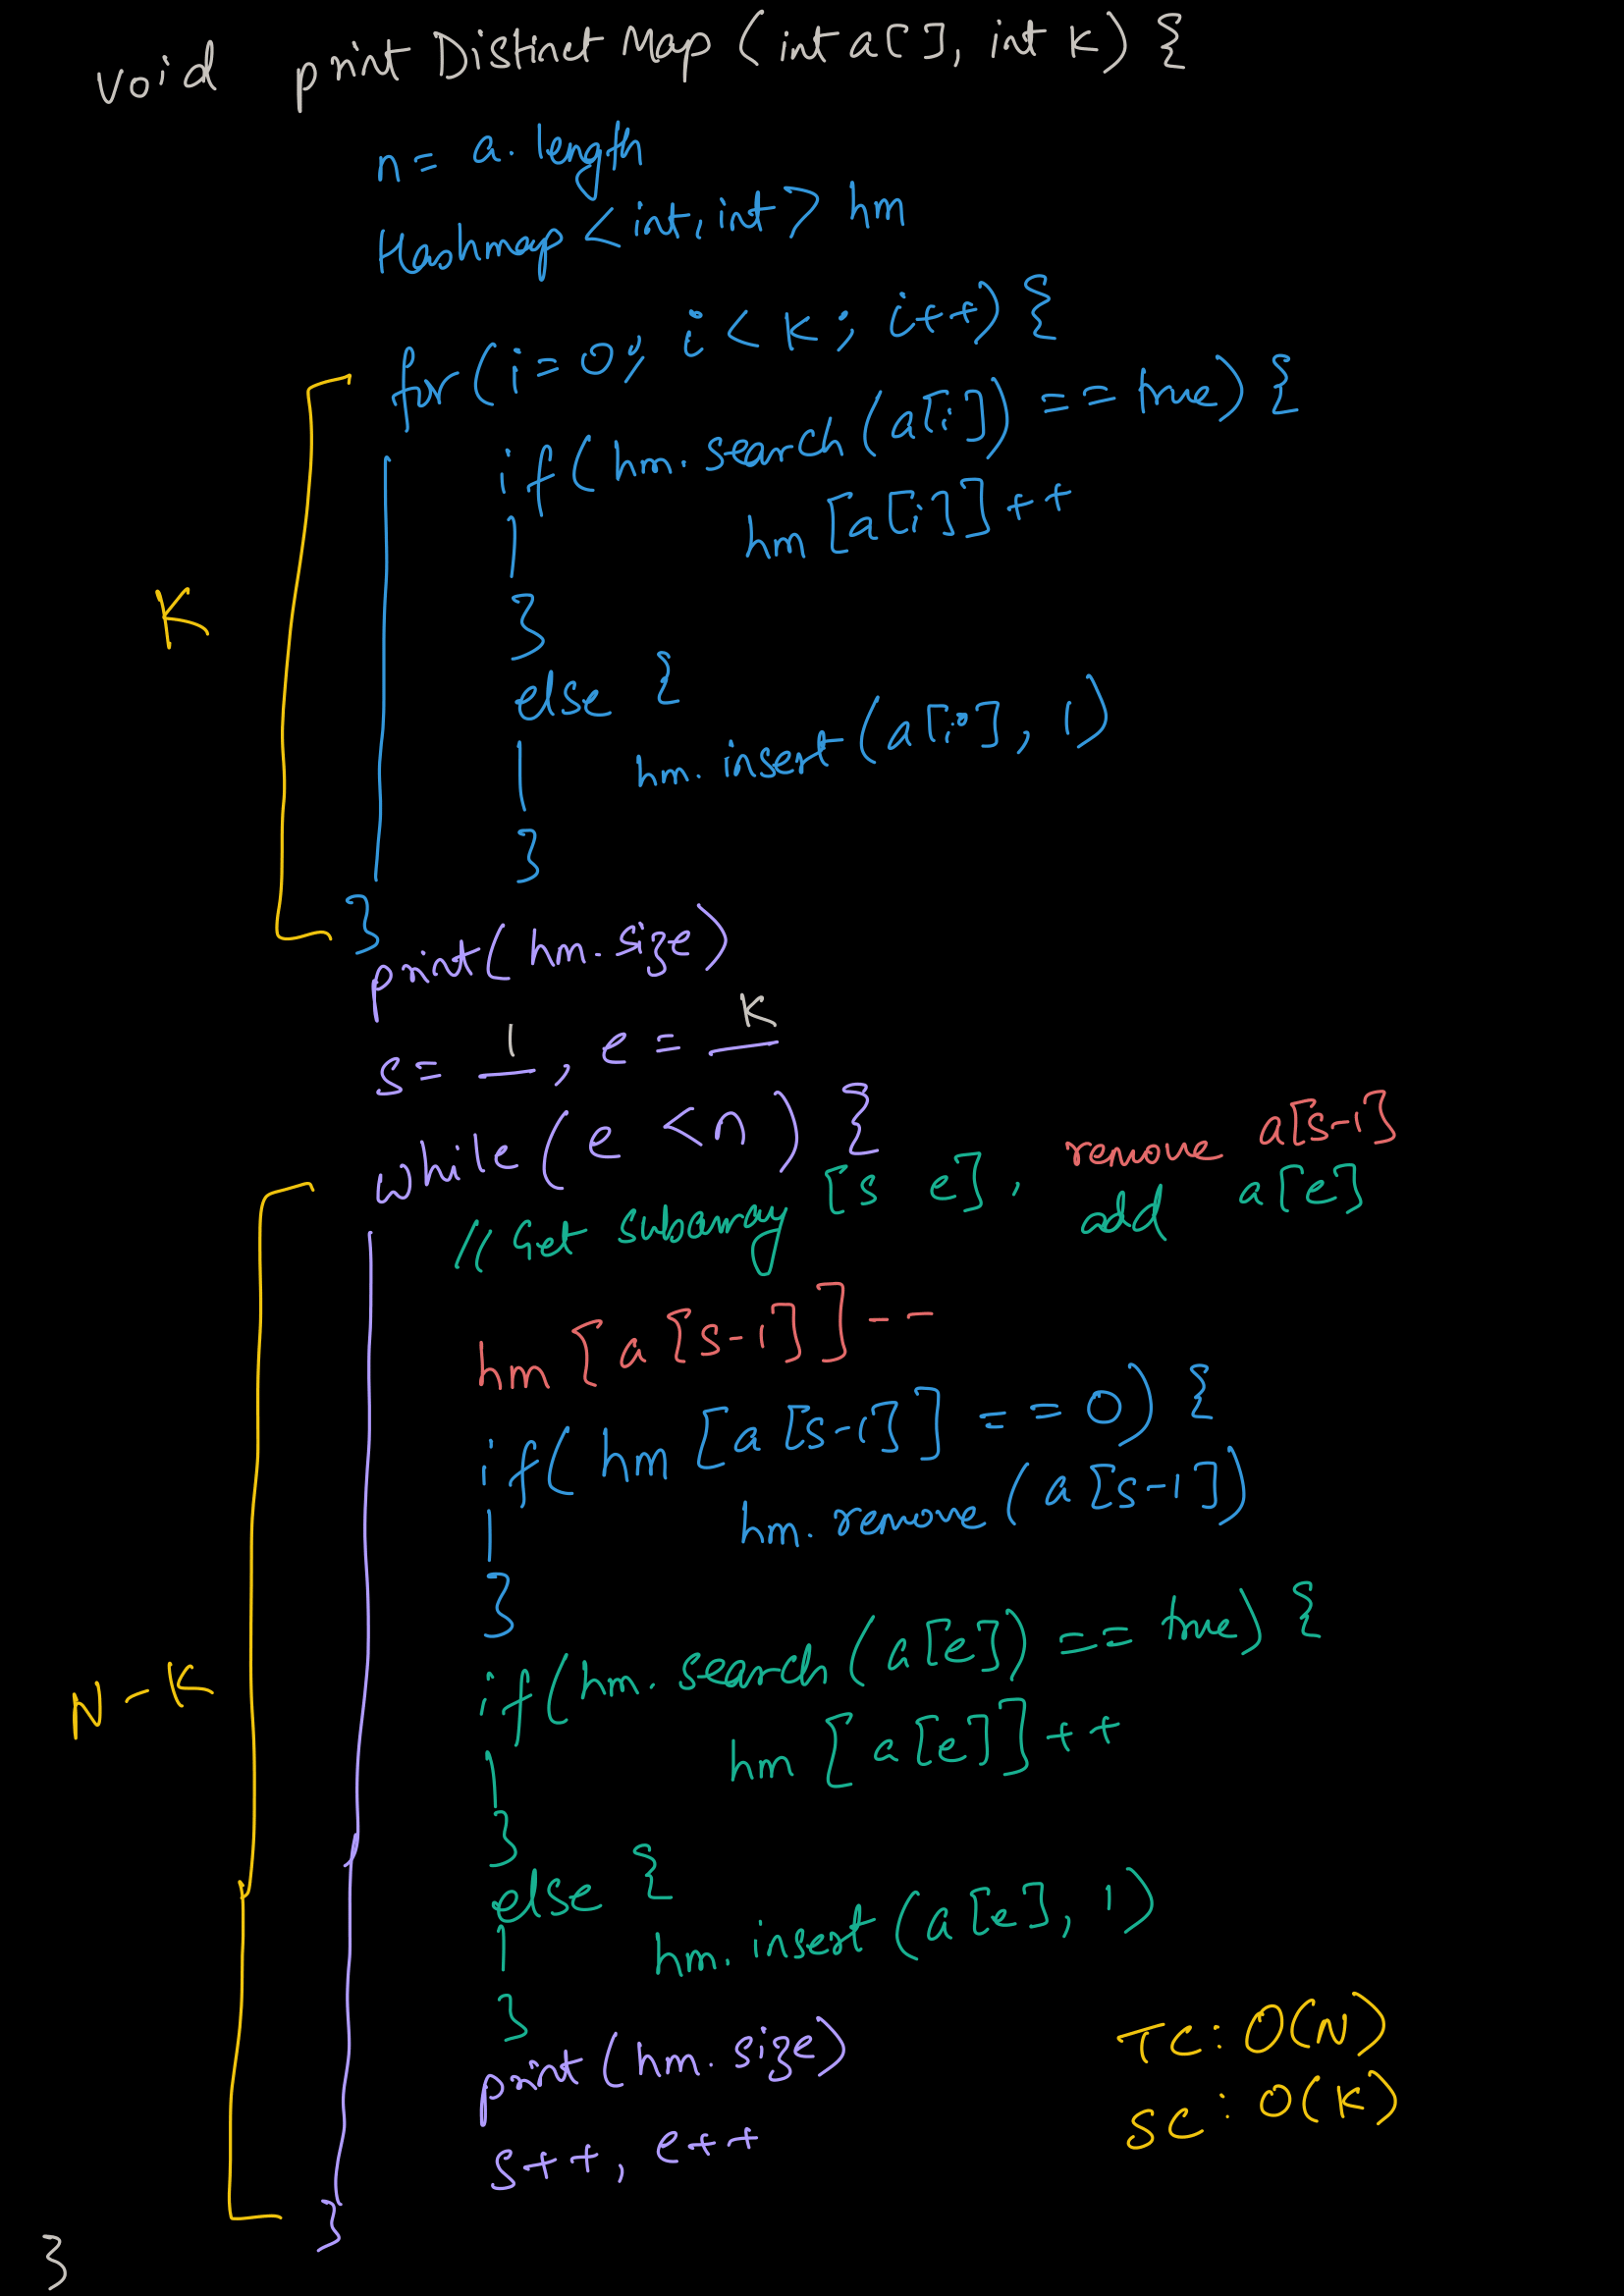 void print Distinct Map (int a[], int K) {
n = a.length
Hashmap <int, int> hm
for (i = 0; i < K; i++) {
if (hm.search(a[i]) == true) {
hm[a[i]]++
}
else {
hm.insert(a[i], 1)
}
}
K
print(hm.size)
s = 1, e = K
while (e < n) {
// Get subarray [s e], remove a[s-1]
add a[e]
hm[a[s-1]]--
if (hm[a[s-1]] == 0) {
hm.remove(a[s-1])
}
if (hm.search(a[e]) == true) {
hm[a[e]]++
}
else {
hm.insert(a[e], 1)
}
print(hm.size)
s++, e++
}
N-K
TC: O(N)
SC: O(K)
}